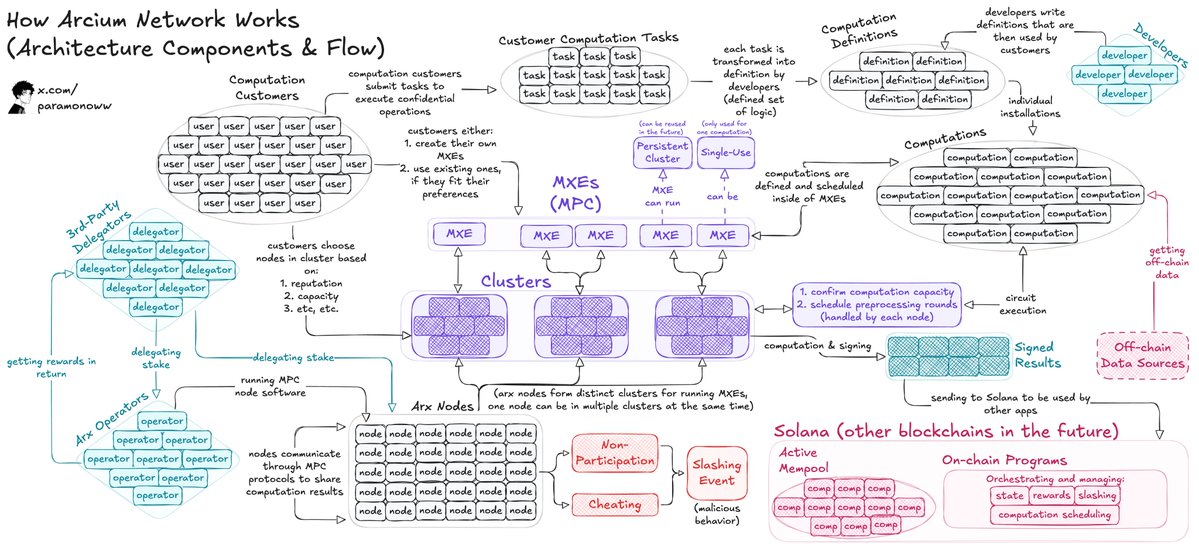 How Arcium Network Works
(Architecture Components & Flow)
x.com/
paramonoww
Computation
Customers
user user user user user
user user user user user user
user user user user user user user
user user user user user user
user user user
computation customers
submit tasks to
execute confidential
operations
Customer Computation Tasks
task task task
task task task task task
task task task task task
each task is
transformed into
definition by
developers
(defined set
of logic)
Computation
Definitions
definition definition
definition definition definition
definition definition
developers write
definitions that are
then used by
customers
Developers
developer
developer developer
developer
individual
installations
customers either:
1. create their own
MXEs
2. use existing ones,
if they fit their
preferences
MXEs
(MPC)
(can be reused
in the future)
Persistent
Cluster
(only used for
one computation)
Single-Use
MXE
can run
can be
MXE MXE MXE MXE MXE
computations are
defined and scheduled
inside of MXEs
Computations
computation computation
computation computation computation
computation computation computation computation
computation computation computation
computation computation
getting
off-chain
data
Off-chain
Data Sources
circuit
execution
1. confirm computation capacity
2. schedule preprocessing rounds
(handled by each node)
Clusters
customers choose
nodes in cluster based
on:
1. reputation
2. capacity
3. etc, etc.
3rd-Party
Delegators
delegator
delegator delegator
delegator delegator delegator
delegator delegator
delegator
getting rewards in
return
delegating
stake
delegating stake
computation & signing
Signed
Results
sending to Solana to be used by
other apps
Arx Operators
operator
operator operator
operator operator operator
operator operator
operator
running MPC
node software
nodes communicate
through MPC
protocols to share
computation results
Arx Nodes
(arx nodes form distinct clusters for running MXEs,
one node can be in multiple clusters at the same time)
node node node node node node
node node node node node node
node node node node node node
node node node node node node
node node node node node node
Non-
Participation
Cheating
Slashing
Event
(malicious
behavior)
Solana (other blockchains in the future)
Active
Mempool
comp comp comp
comp comp comp comp comp
comp comp comp
On-chain Programs
Orchestrating and managing:
state rewards slashing
computation scheduling